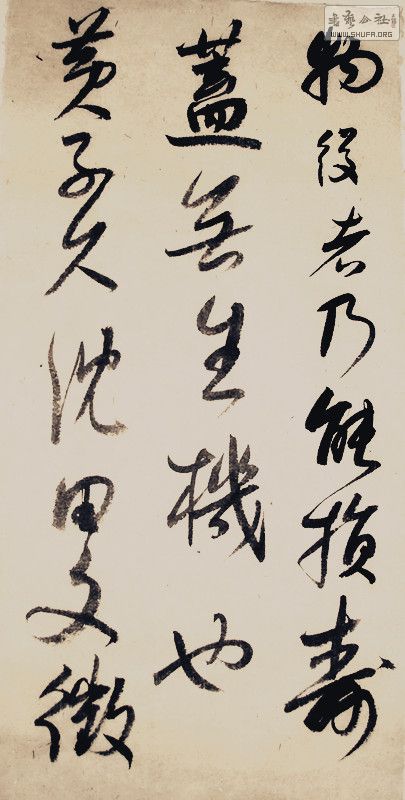 物役者乃能損壽
蓋無生機也
黃子久沈田文徵
書藝公社
WWW.SHUFA.ORG